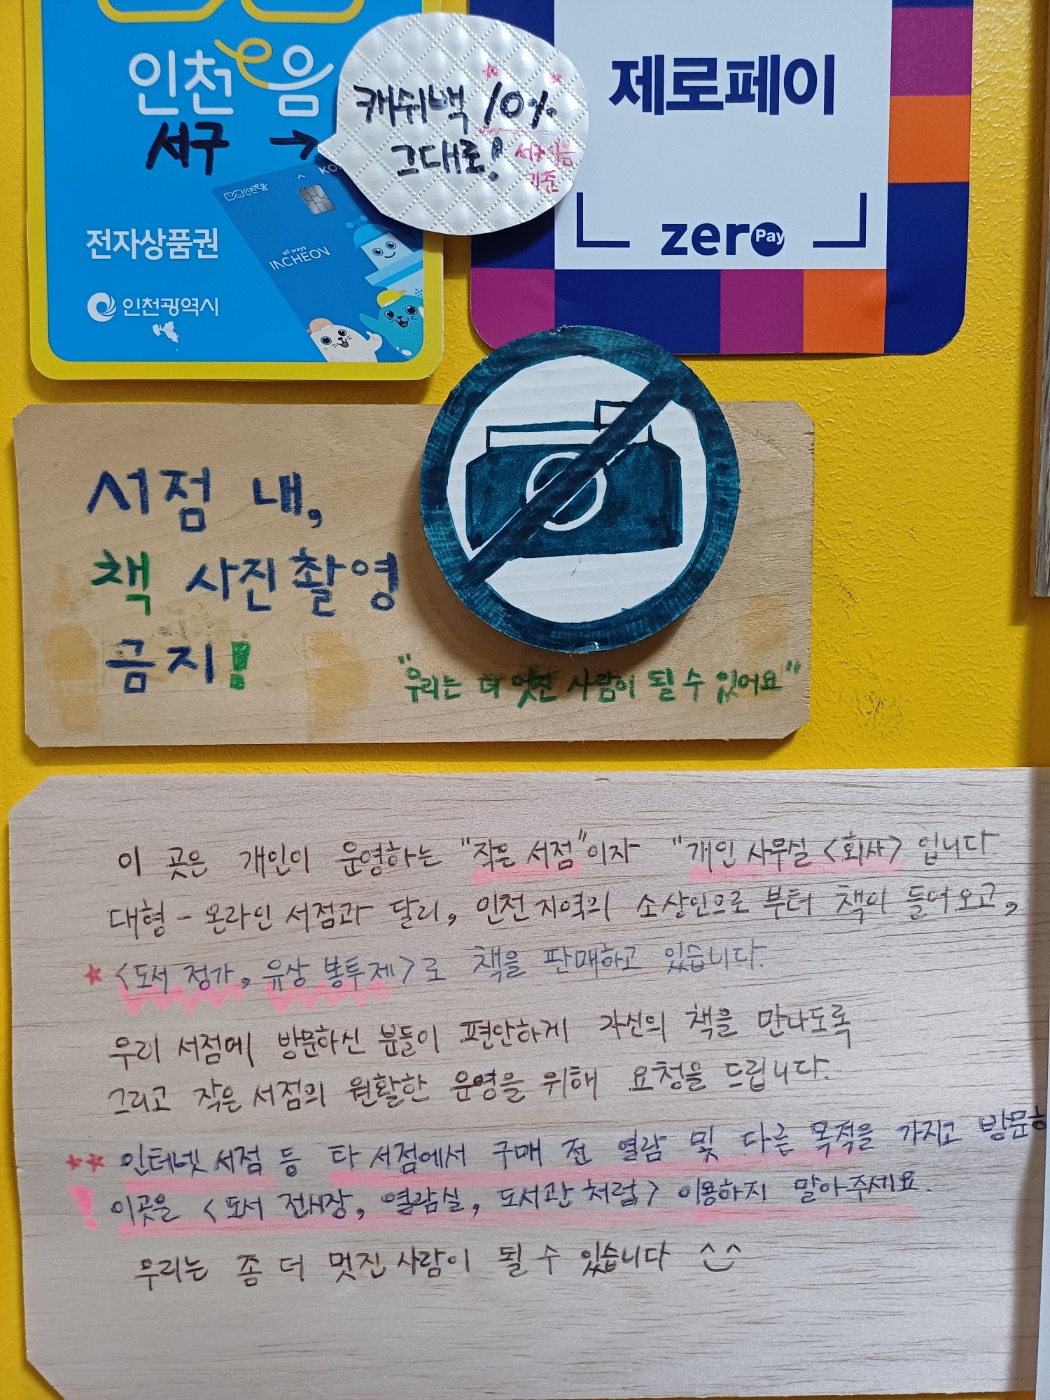 인천e음
서구 →
캐쉬백 10%
그대로!
서구이음
기준
전자상품권
all ways
INCHEON
인천광역시
제로페이
zero Pay
서점 내,
책 사진촬영
금지!
"우리는 더 멋진 사람이 될 수 있어요"
이 곳은 개인이 운영하는 "작은 서점"이자 "개인 사무실 <회사> 입니다
대형 - 온라인 서점과 달리, 인천 지역의 소상인으로 부터 책이 들어오고,
* <도서 정가, 유상 봉투제>로 책을 판매하고 있습니다.
우리 서점에 방문하신 분들이 편안하게 자신의 책을 만나도록
그리고 작은 서점의 원활한 운영을 위해 요청을 드립니다.
** 인터넷 서점 등 타 서점에서 구매 전 열람 및 다른 목적을 가지고 방문하
! 이곳을 <도서 전시장, 열람실, 도서관 처럼> 이용하지 말아주세요.
우리는 좀 더 멋진 사람이 될 수 있습니다 ^^